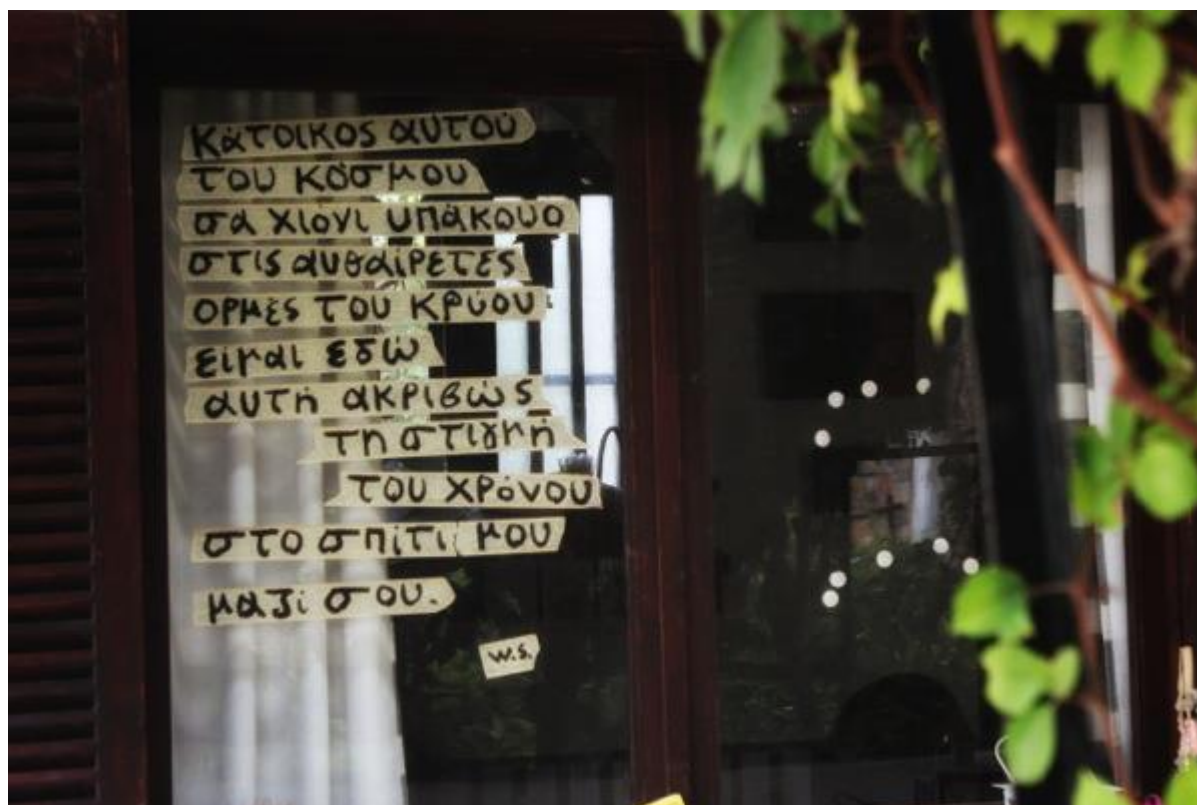 κάτοικος αυτού
του κόσμου
σα χιόνι υπάκουο
στις αυθαίρετες
ορμές του κρύου
είμαι εδώ
αυτή ακριβώς
τη στιγμή
του χρόνου
στο σπίτι μου
μαζί σου.
w.s.